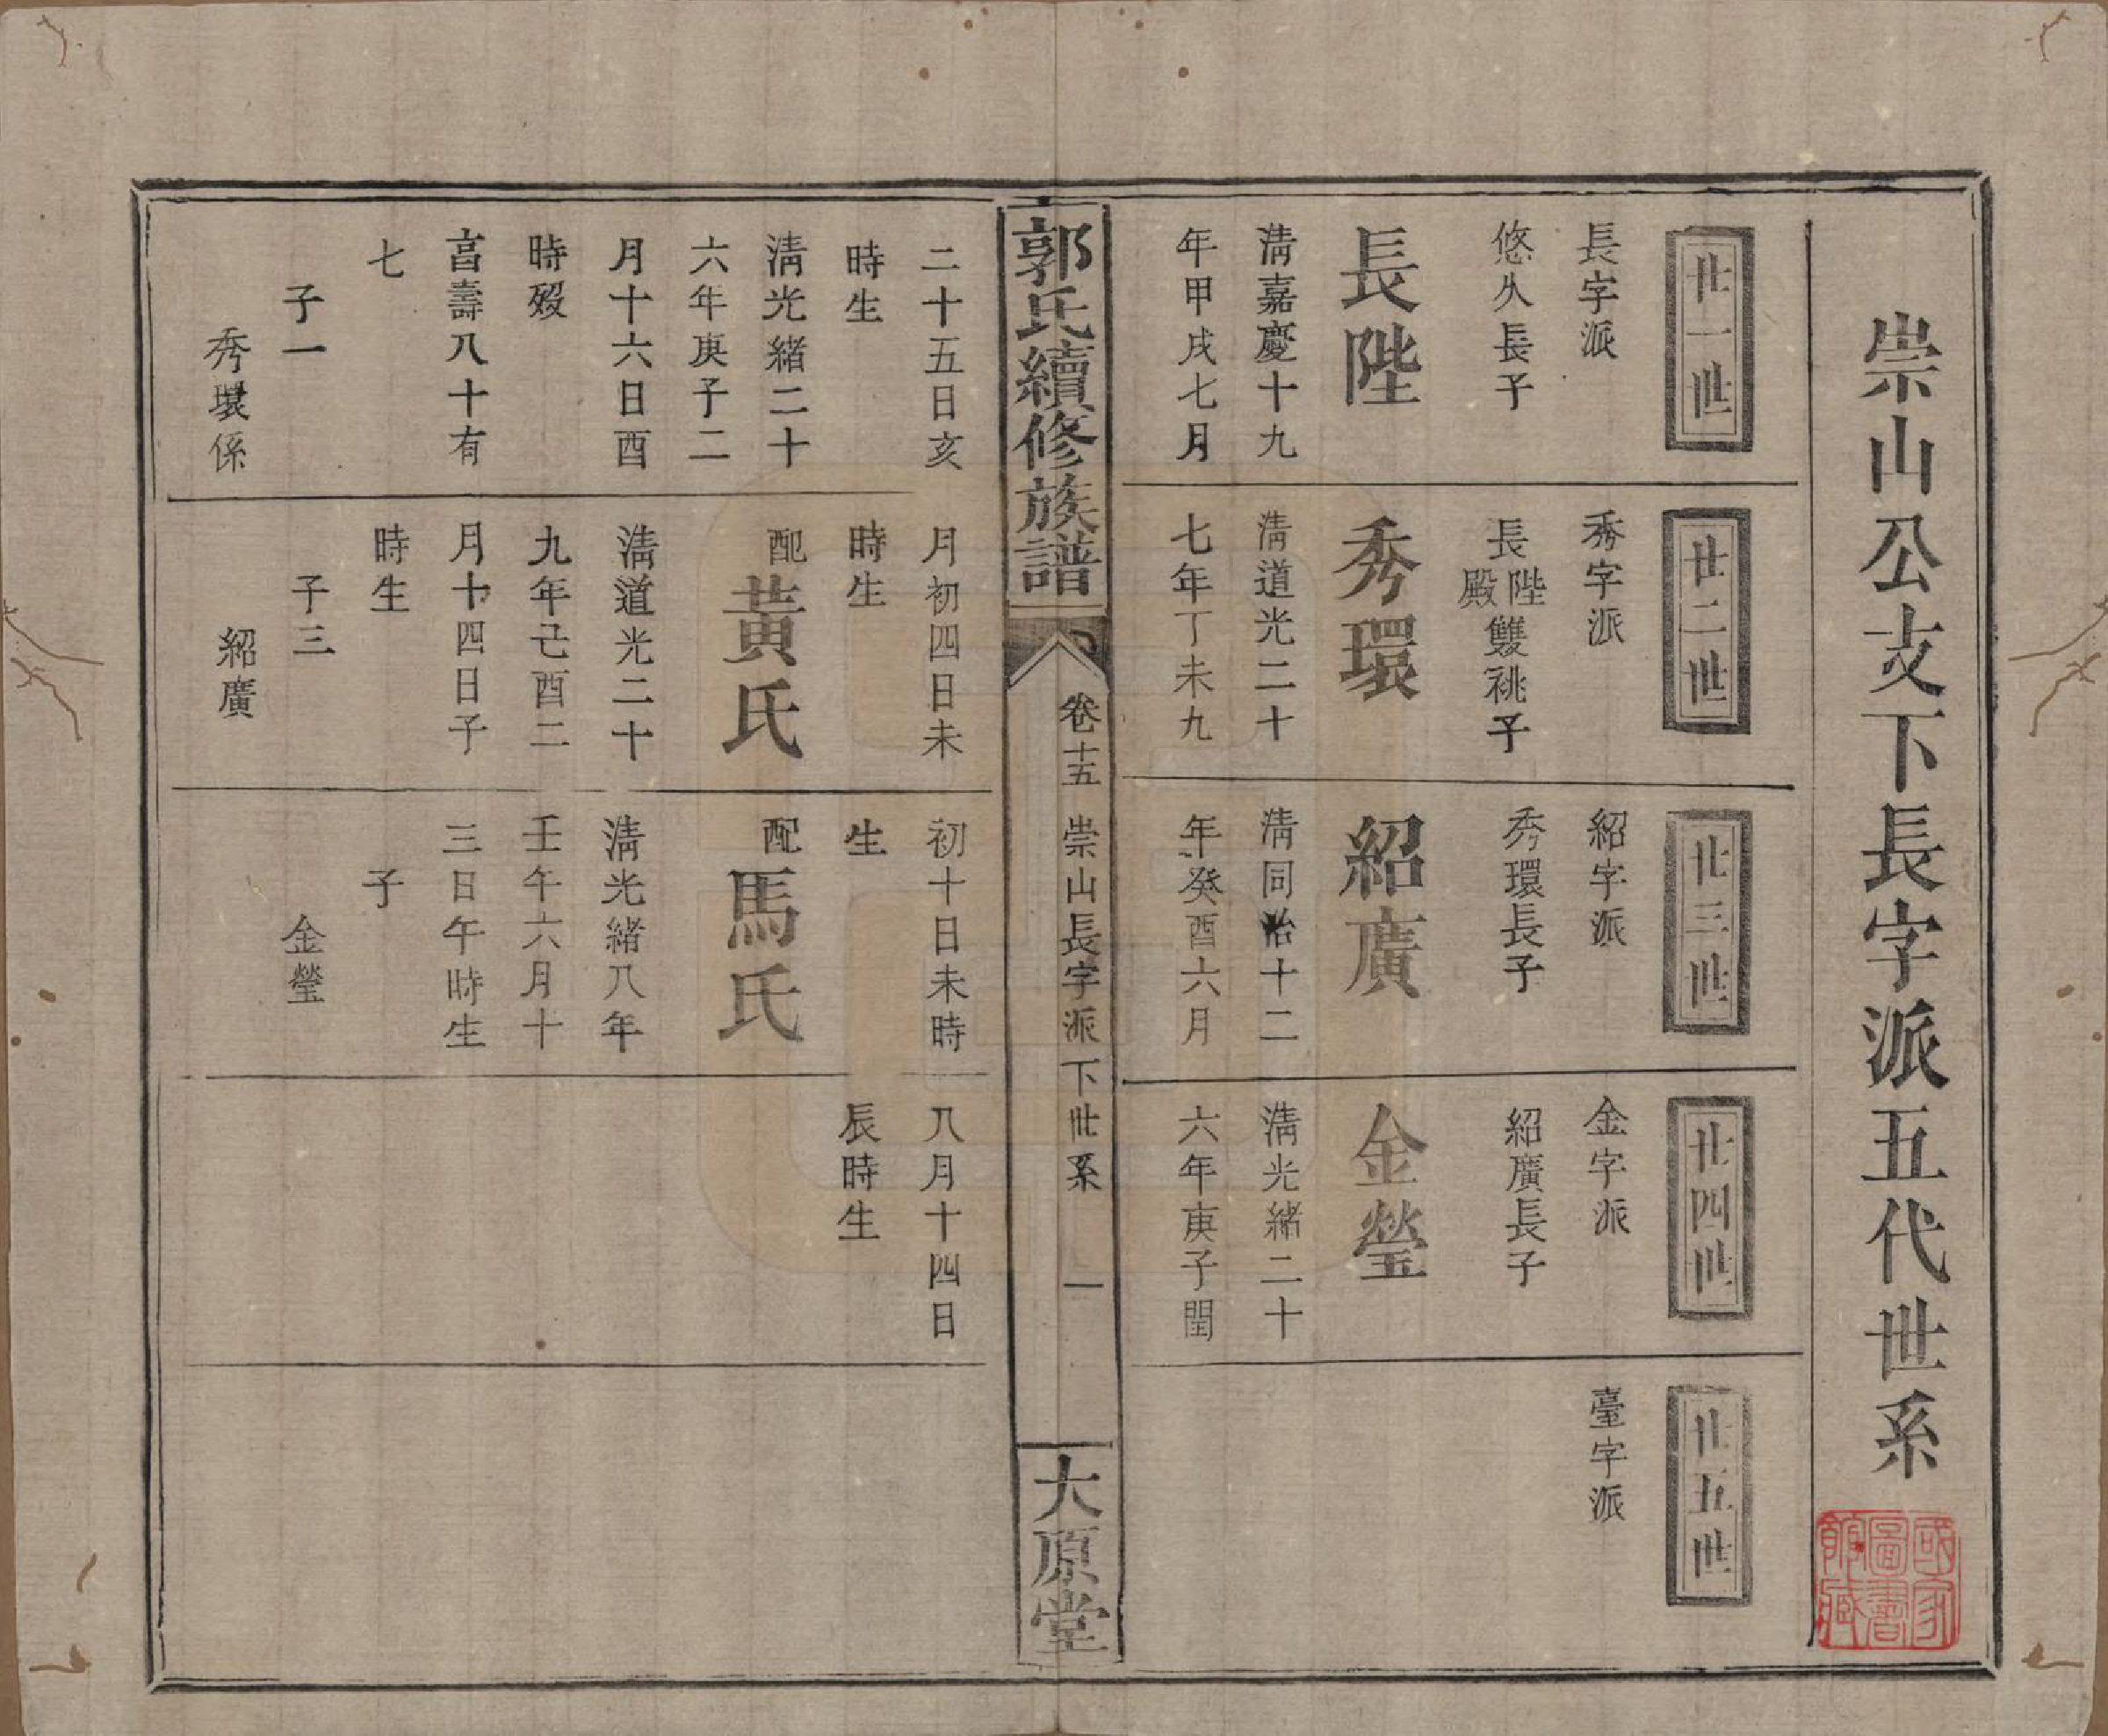 崇山公支下長字派五代世系
廿一世
長字派
悠久長子
長陛
淸嘉慶十九
年甲戌七月
廿二世
秀字派
長陛
殿雙祧子
秀環
淸道光二十
七年丁未九
廿三世
紹字派
秀環長子
紹廣
淸同治十二
年癸酉六月
廿四世
金字派
紹廣長子
金瑩
淸光緒二十
六年庚子閏
廿五世
臺字派
郭氏續修族譜
卷十五
崇山長字派下世系
一
大原堂
二十五日亥
時生
淸光緒二十
六年庚子二
月十六日酉
時歿
亯壽八十有
七
子一
秀環係
月初四日未
時生
配黃氏
淸道光二十
九年己酉二
月十四日子
時生
子三
紹廣
初十日未時
生
配馬氏
淸光緒八年
壬午六月十
三日午時生
子
金瑩
八月十四日
辰時生
國家
圖書
館藏